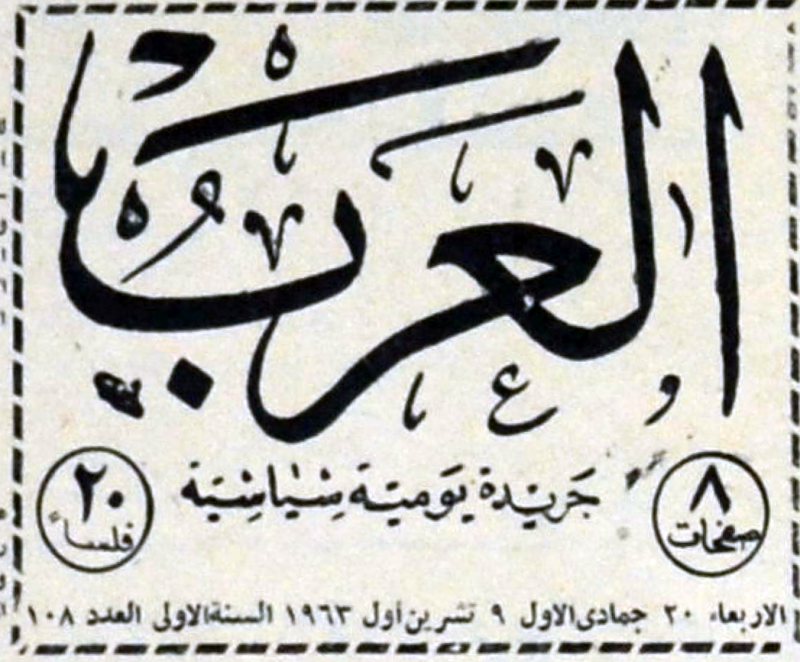 العرب
جريدة يومية سياسية
٨
صفحات
٢٠
فلسا
الاربعاء ٢٠ جمادى الاول ٩ تشرين اول ١٩٦٣ السنة الاولى العدد ١٠٨